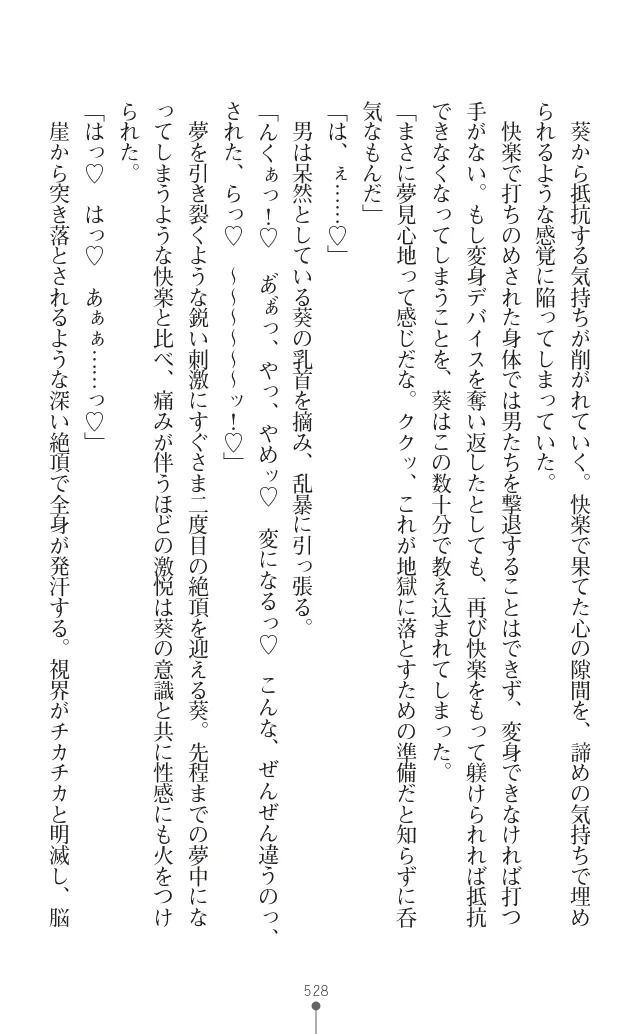 葵から抵抗する気持ちが削がれていく。快楽で果てた心の隙間を、諦めの気持ちで埋め
られるような感覚に陥ってしまっていた。
　快楽で打ちのめされた身体では男たちを撃退することはできず、変身できなければ打つ
手がない。もし変身デバイスを奪い返したとしても、再び快楽をもって躾けられれば抵抗
できなくなってしまうことを、葵はこの数十分で教え込まれてしまった。
「まさに夢見心地って感じだな。ククッ、これが地獄に落とすための準備だと知らずに呑
気なもんだ」
「は、ぇ……♡」
　男は呆然としている葵の乳首を摘み、乱暴に引っ張る。
「んくぁっ！♡　あ゛ぁ゛っ、やっ、やめッ♡　変になるっ♡　こんな、ぜんぜん違うのっ、
された、らっ♡　～～～～～～ッ！♡」
　夢を引き裂くような鋭い刺激にすぐさま二度目の絶頂を迎える葵。先程までの夢中にな
ってしまうような快楽と比べ、痛みが伴うほどの激悦は葵の意識と共に性感にも火をつけ
られた。
「はっ♡　はっ♡　あぁぁ……っ♡」
　崖から突き落とされるような深い絶頂で全身が発汗する。視界がチカチカと明滅し、脳
528